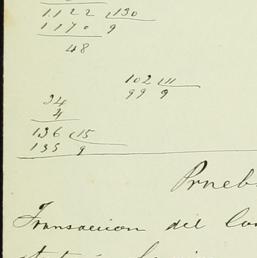 1122 130
1170 9
48
102 11
99 9
34
4
136 15
135 9
Prueb
Transaccion del Con